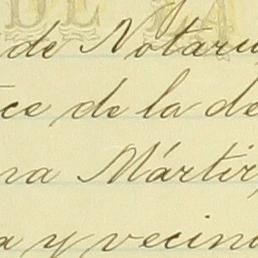 DE LA
de Notaru
ce de la de
na Mártir
a y vecin